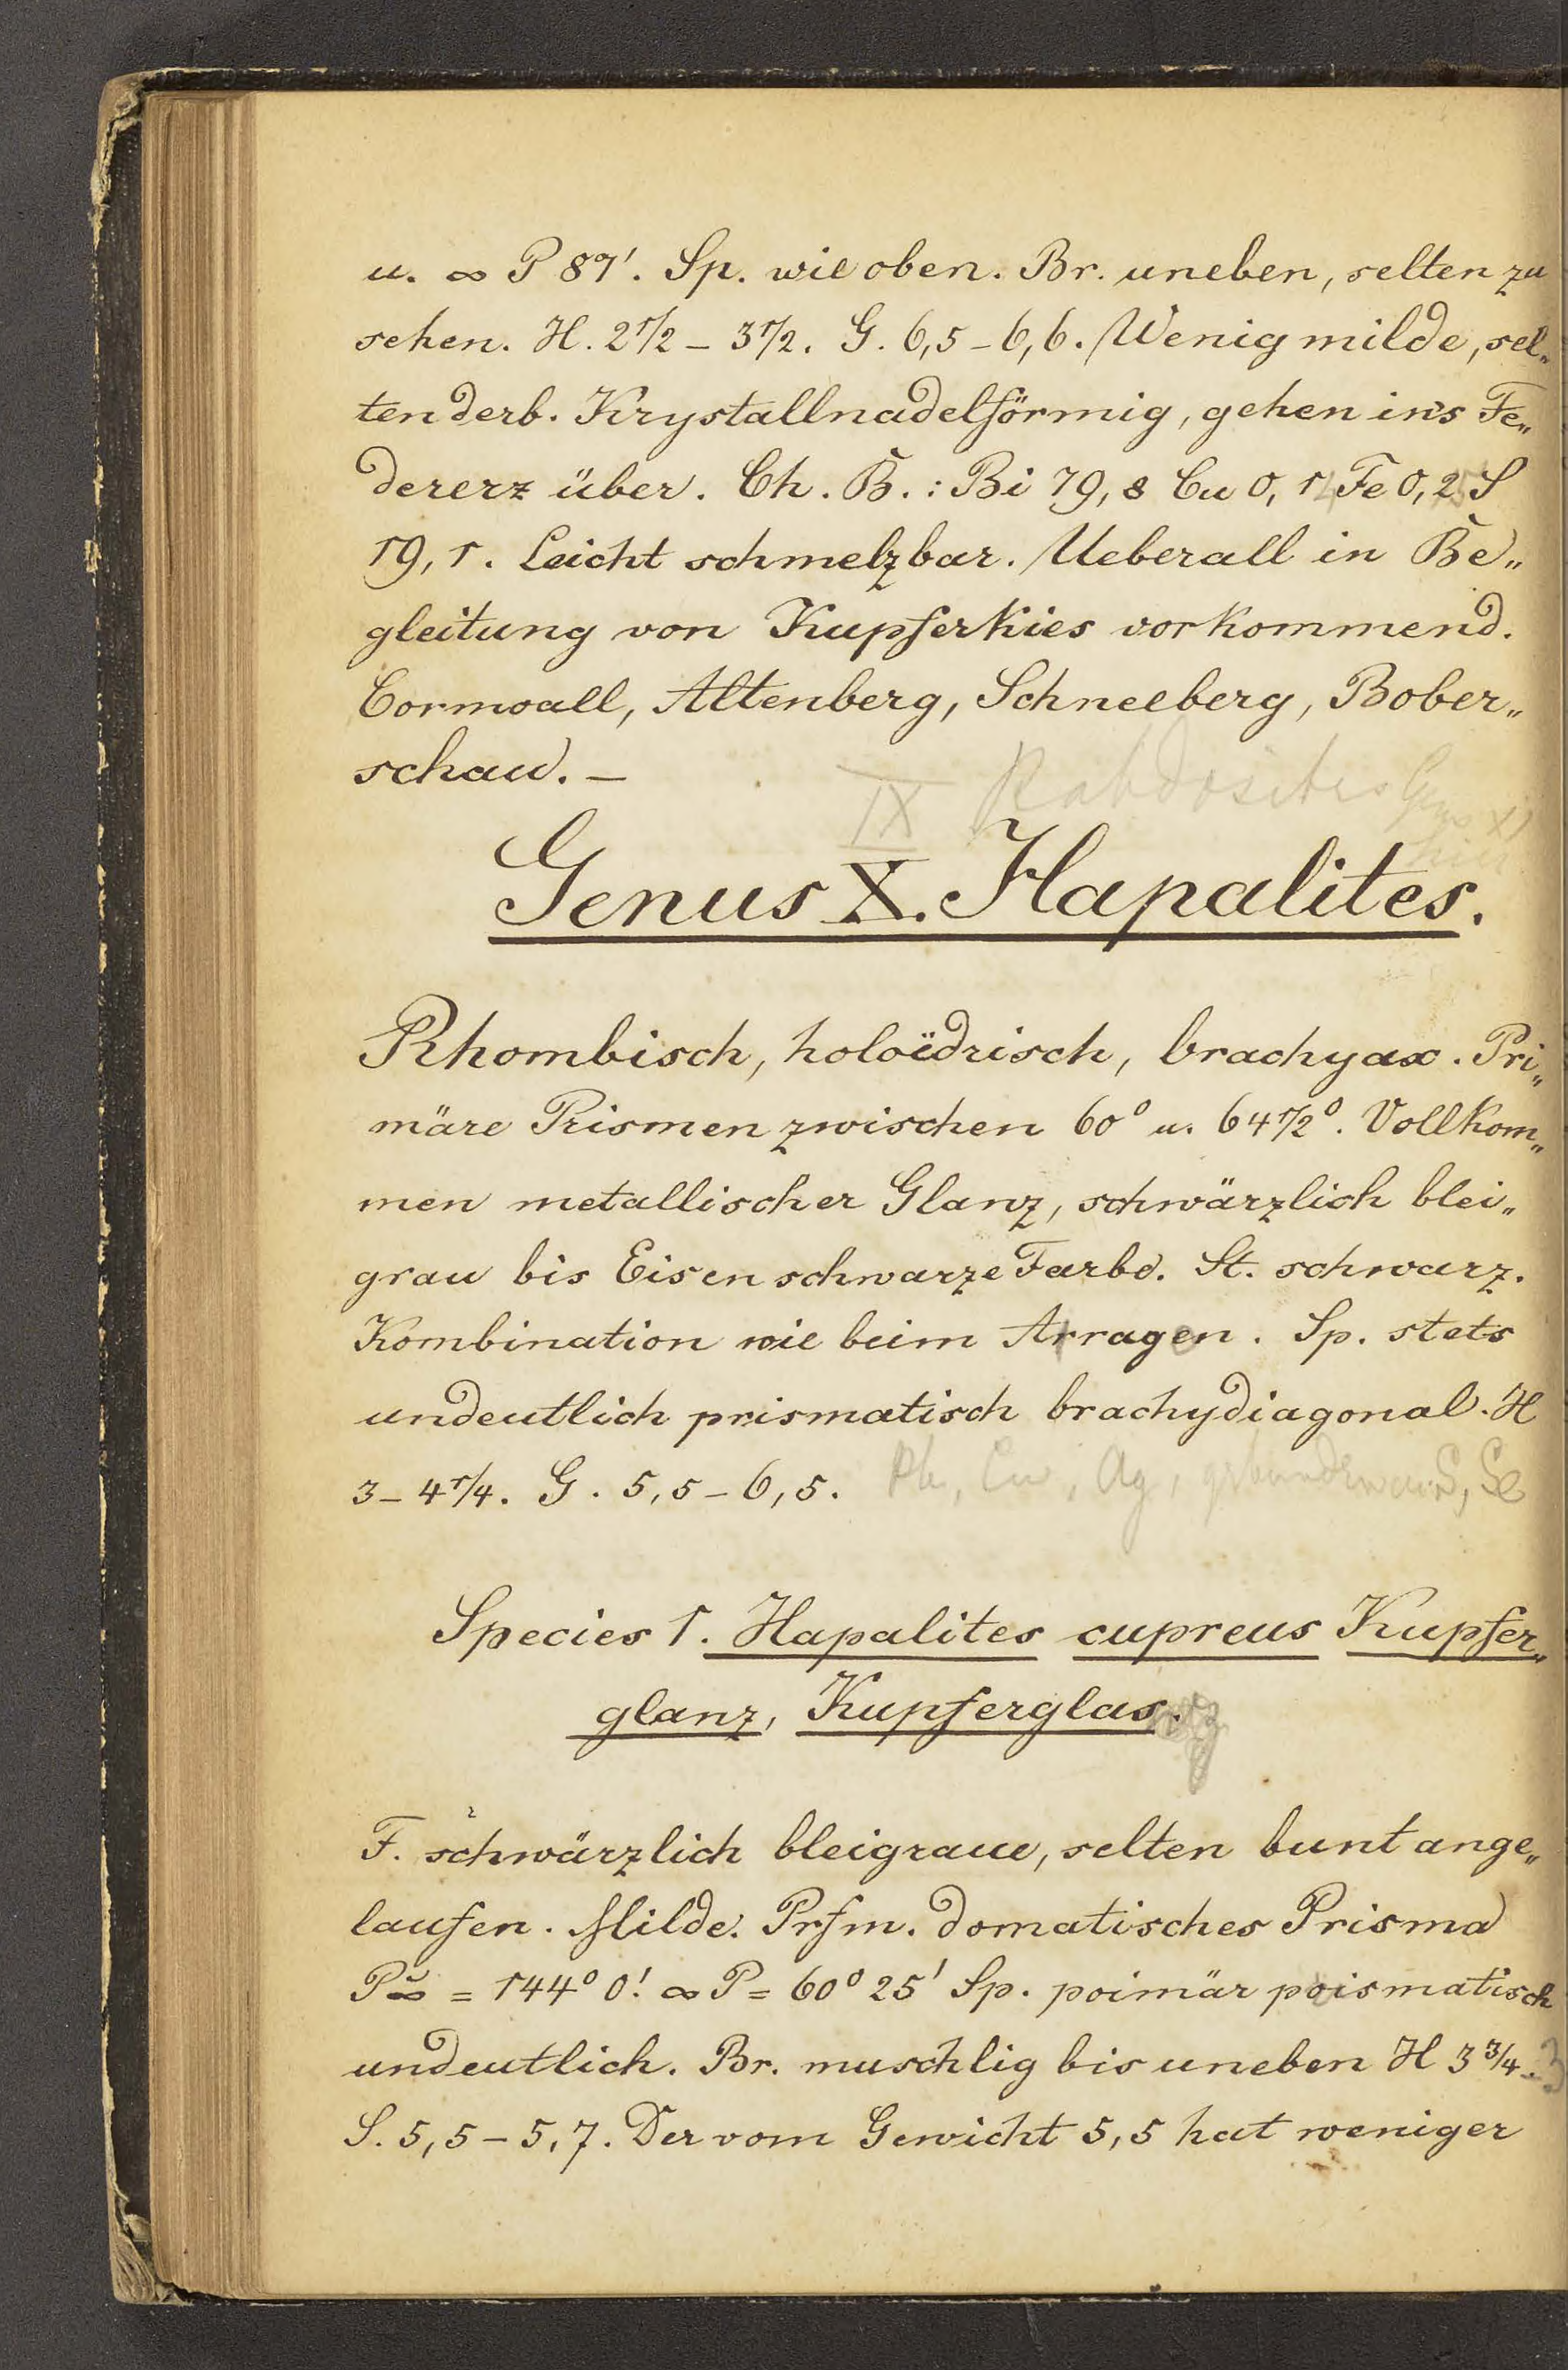 u. ∞ P 87'. Sp. wie oben. Br. uneben, selten zu
sehen. H. 2 1/2 – 3 1/2. G. 6,5 – 6,6. Wenig milde, sel„
ten derb. Krystallnadelförmig, gehen ins Fe„
dererz über. Ch. B.: Bi 79,8 Cu 0,1 Fe 0,2 S
19,1. Leicht schmelzbar. Ueberall in Be„
gleitung von Kupferkies vorkommend.
Cornwall, Altenberg, Schneeberg, Bober„
schau. –
IX Rabdosites Genus XI
hier
Genus X. Hapalites.
Rhombisch, holoëdrisch, brachyax. Pri„
märe Prismen zwischen 60° u. 64 1/2°. Vollkom„
men metallischer Glanz, schwärzlich blei„
grau bis Eisenschwarze Farbe. St. schwarz.
Kombination wie beim Arragen. Sp. stets
undeutlich prismatisch brachydiagonal. H
3 – 4 1/4. G. 5,5 – 6,5. Pb, Cu, Ag, gebunden an S, Se
Species 1. Hapalites cupreus Kupfer„
glanz, Kupferglas.
F. schwärzlich bleigraue, selten bunt ange„
laufen. Milde. Prfm. domatisches Prisma
P̆∞ = 144° 0'. ∞ P = 60° 25' Sp. poimär poismatisch
undeutlich. Br. muschlig bis uneben H 3 3/4.
S. 5,5 – 5,7. Der vom Gewicht 5,5 hat weniger